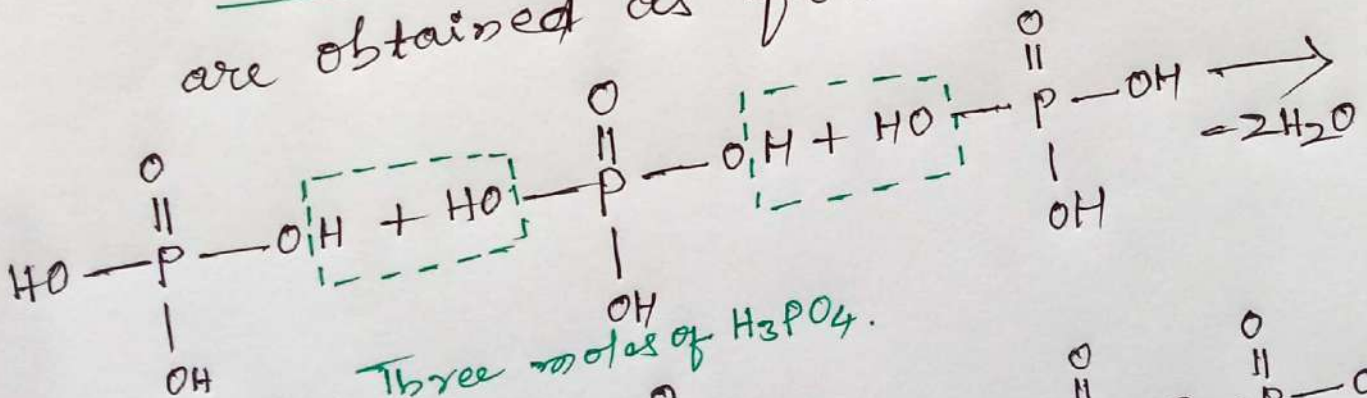 are obtained as
O O O
|| || ||
HO — P — OH + HO — P — OH + HO — P — OH ⟶
| | |
OH OH OH
-2H2O
Three moles of H3PO4.
O O O
|| ||
P — O